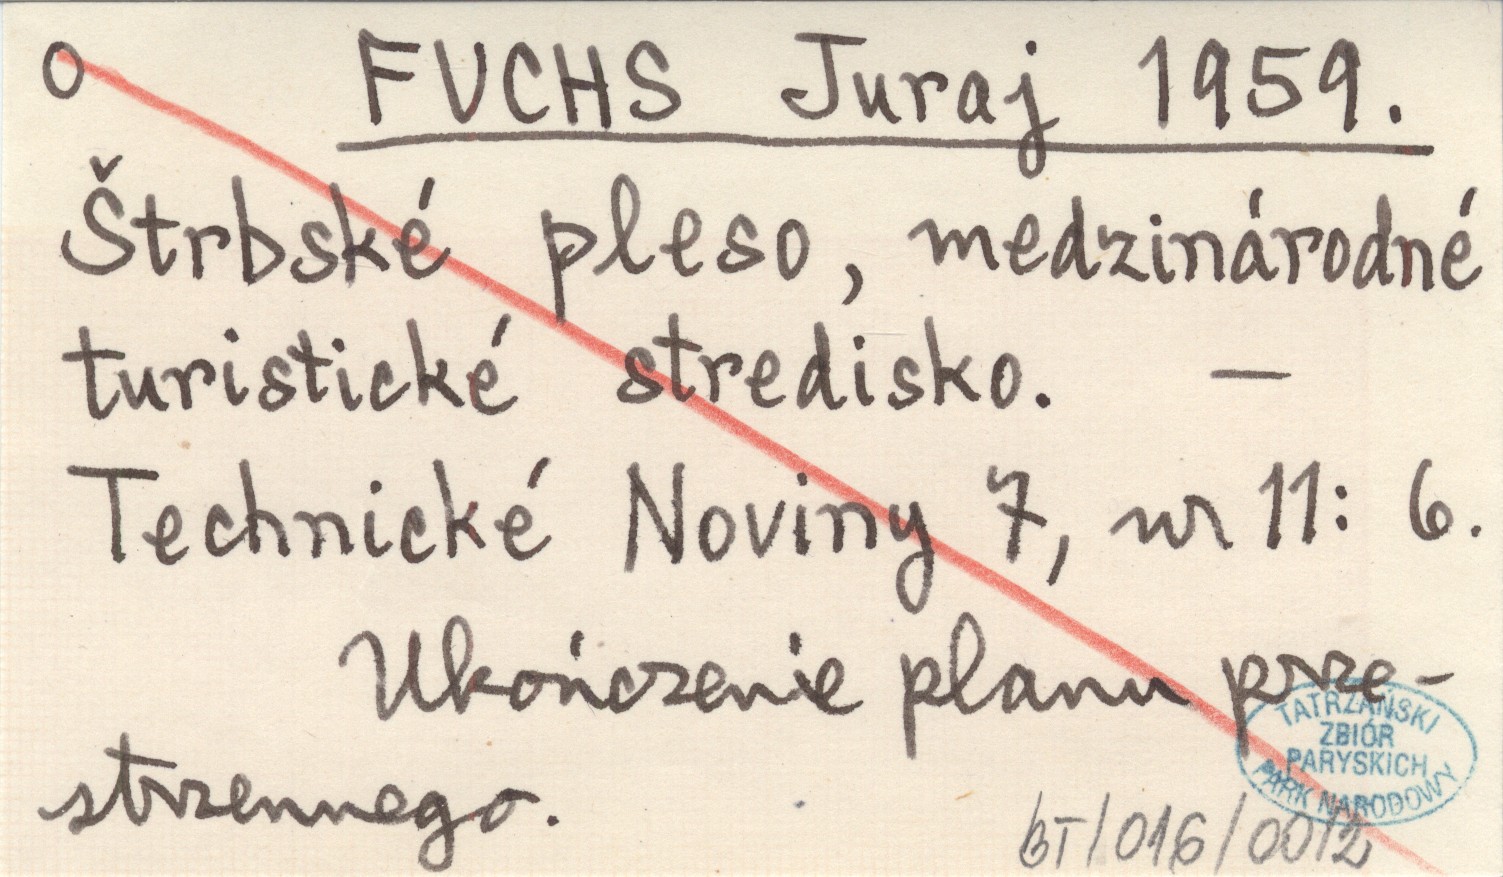 O FUCHS Juraj 1959.
Štrbské pleso, medzinárodné
turistické stredisko. —
Technické Noviny 7, nr 11: 6.
Ukończenie planu prze-
strzennego.
TATRZAŃSKI
ZBIÓR
PARYSKICH
PARK NARODOWY
BT/016/0012